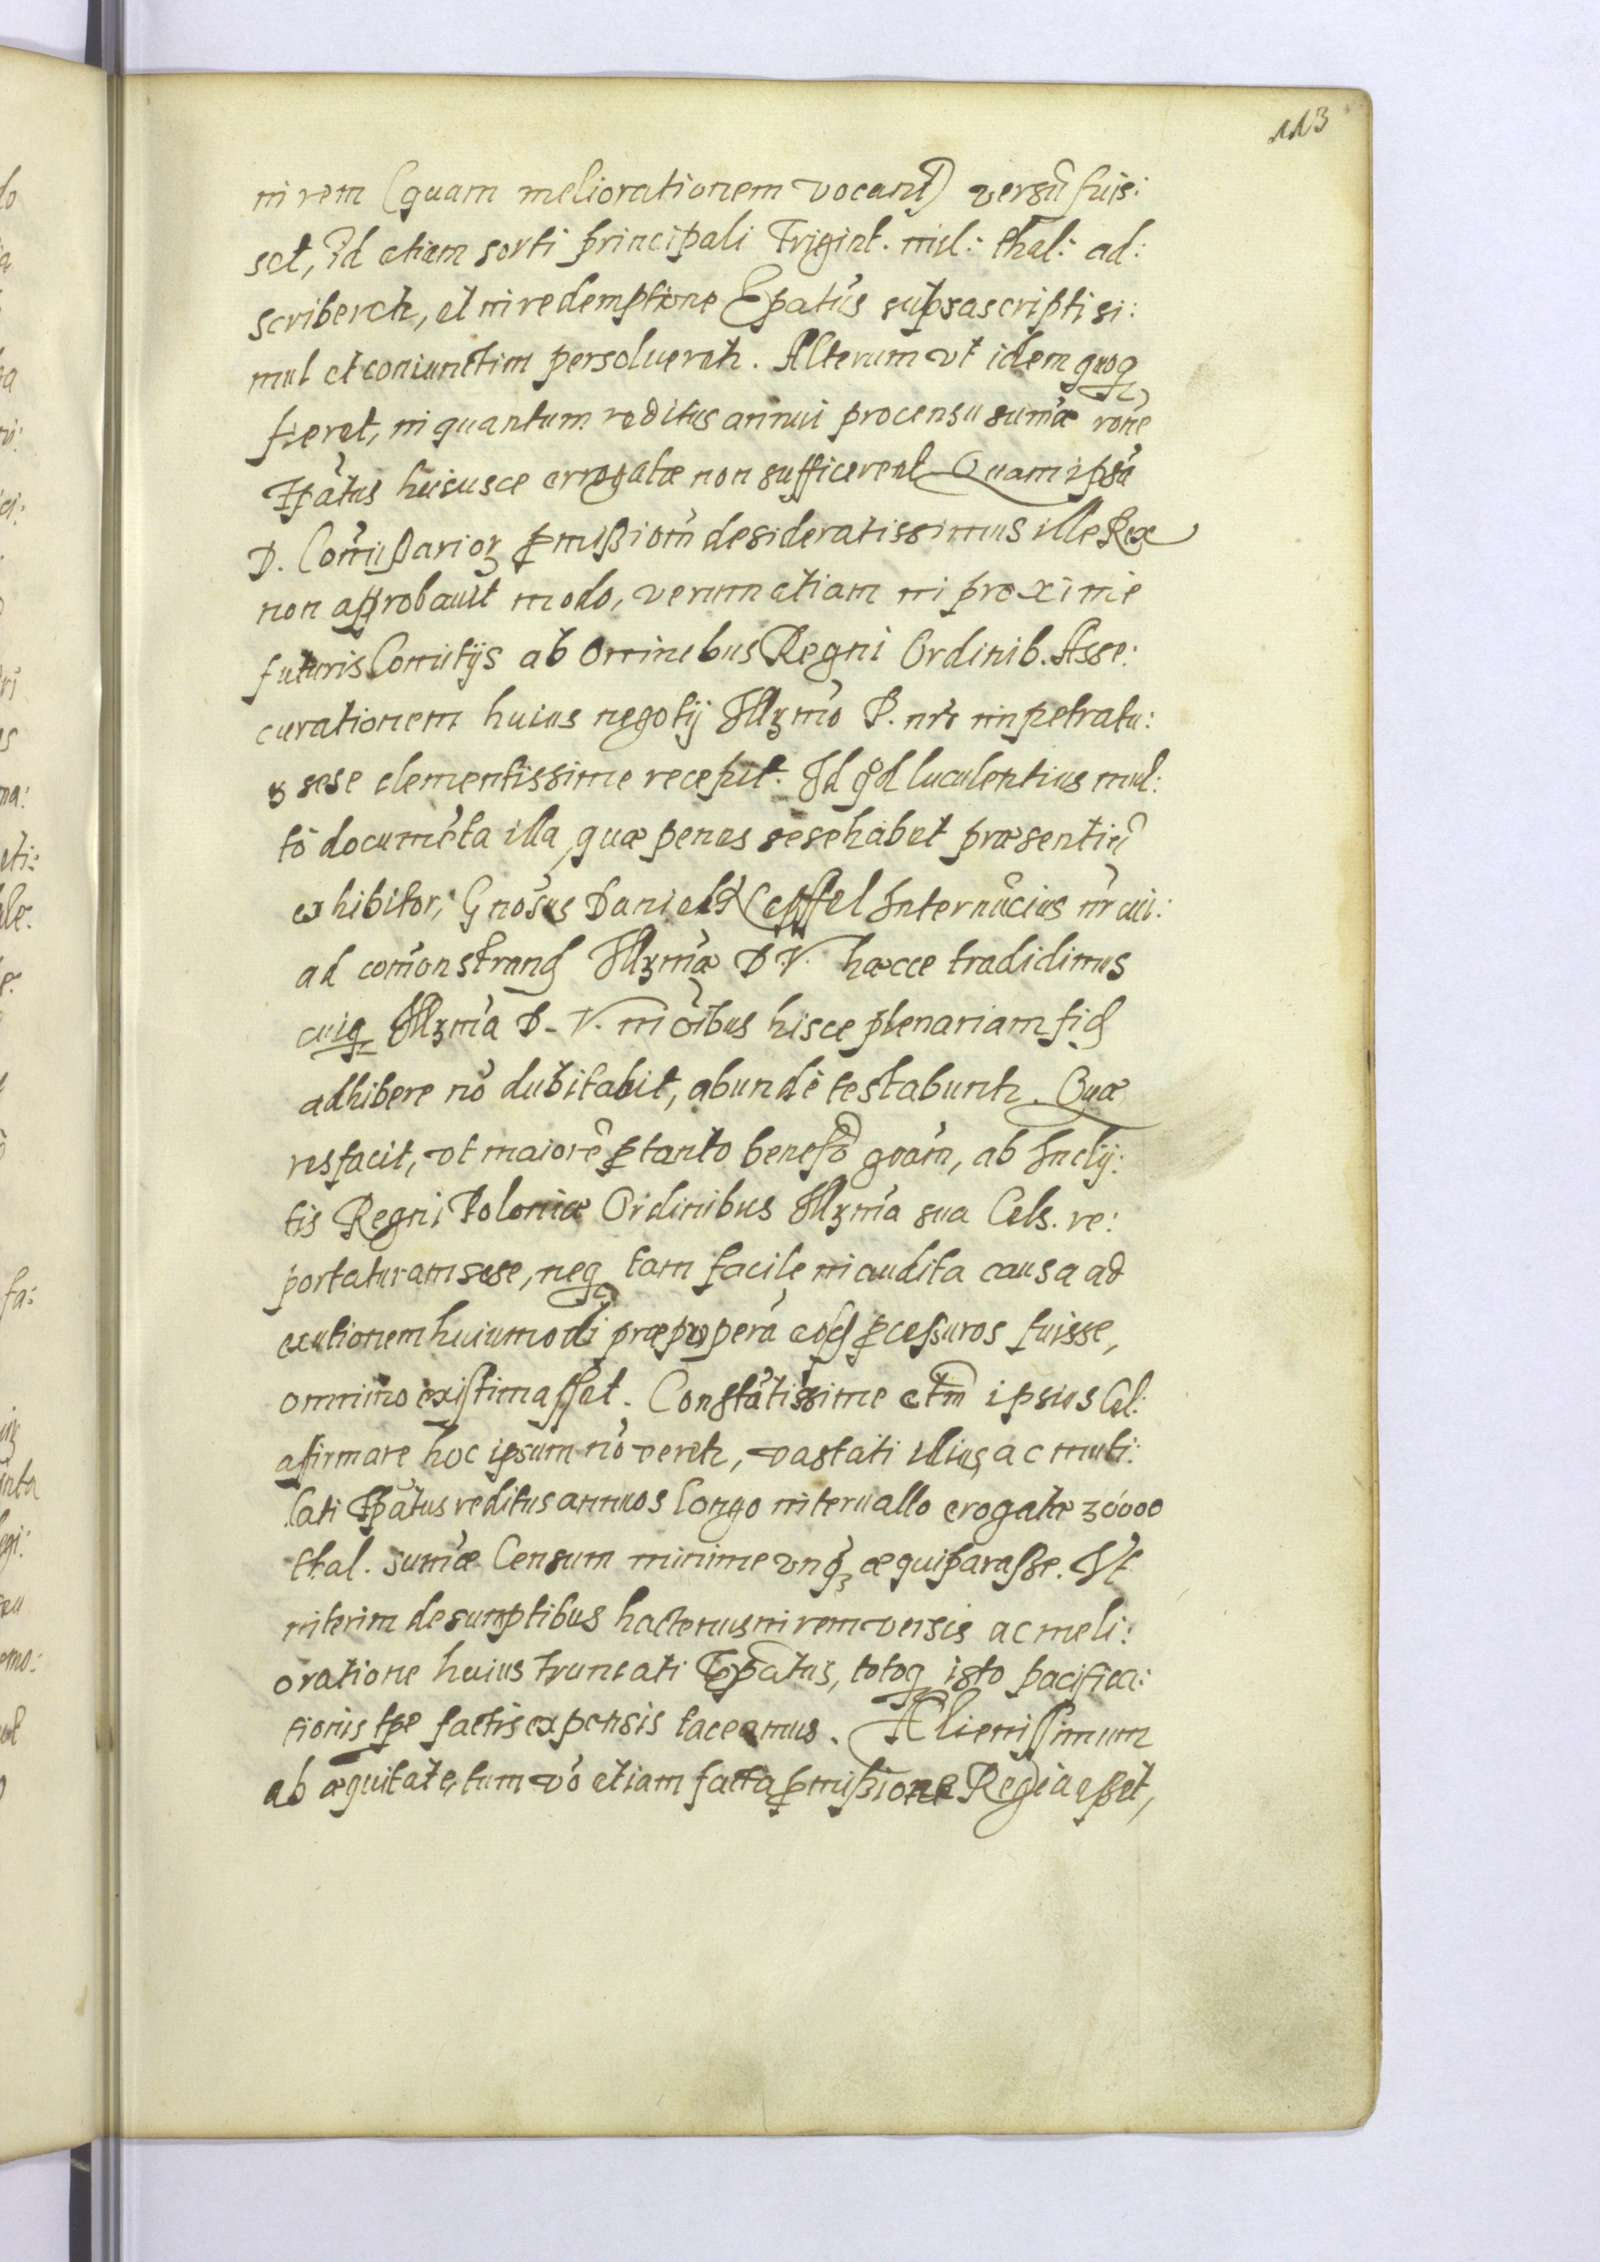 113
in rem (quam meliorationem vocant) versũ fuis:
set, Id etiam sorti principali Trigint. mil: thal: ad:
scriberetr, et in redemptione Epatus suprascripti si:
mul et coniunctim persolueretr. Alterum vt idem quoq
fieret, in quantum reditus annui pro censu sum̃æ rõne
Epãtus huiusce errogatæ non sufficerent Quam ipsã
D. Com̃issarior ꝓmißionẽ desideratissimus ille Rex
non approbauit modo, verum etiam in proximè
futuris Comitijs ab Omnibus Regni Ordinib. Asse:
curationem huius negotij Illmo P. nro impetratu:
ꝫ sese clementissime recepit. Id qd luculentius mul:
tò documẽta illa, quæ penes sese habet præsentiũ
exhibitor, Gnosus Daniel Internũcius nr cui:
ad com̃onstrand Illmæ D. V. hæcce tradidimus
cuiq Illma D. V. in oĩbus hisce plenariam fid
adhibere nõ dubitabit, abundè testabuntr. Quæ
res facit, vt maiorẽ ꝓ tanto benefõ grãm, ab Incly:
tis Regni Poloniæ Ordinibus Illma sua Cels. re:
portaturam sese, neq tam facile inaudita causa ad
exutionem huiumodi præproperã eosd ꝓceßuros fuisse,
omnino existimasset. Constãtissime etm̃ ipsius Cel:
affirmare hoc ipsum nõ veretr, vastati illius ac muti:
lati Epãtus reditus annuos longo interuallo erogatæ 30000
thal. sum̃æ Censum minime vnq æquiparaße. Vt
interim de sumptibus hactenus in rem versis ac meli:
oratione huius truncati Epatus, totoq isto pacifica:
tionis tpe factis expensis taceamus. Alienissimum
ab æquitate, tum võ etiam facta ꝓmißione Regia eßet,